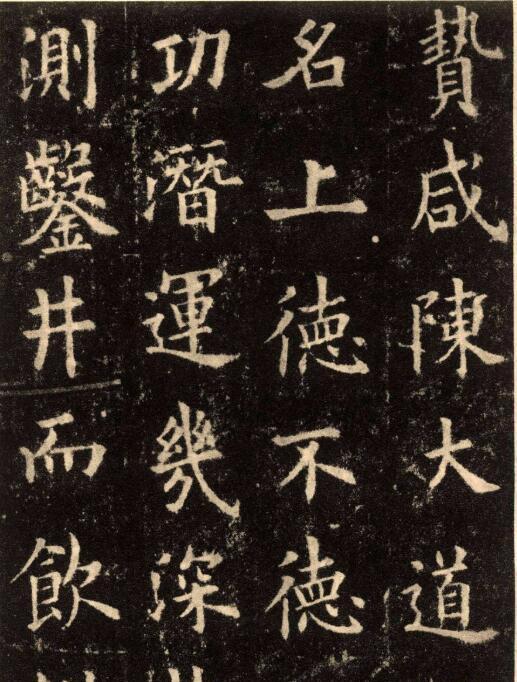 贄咸陳大道
名上徳不徳
功潛運幾深
測鑿井而飲